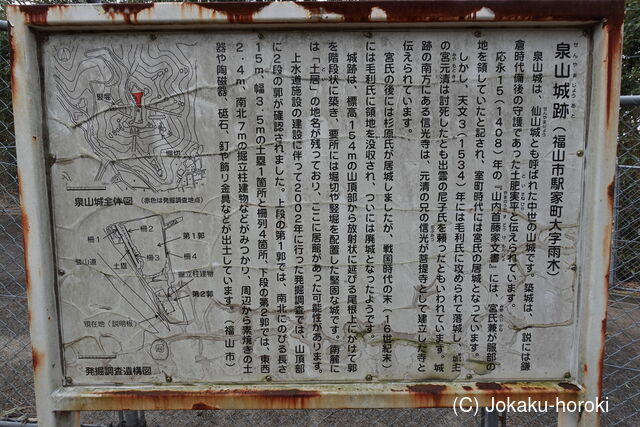 泉山城跡（福山市駅家町大字雨木）
泉山城は、仙山城とも呼ばれた中世の山城です。築城は、一説には鎌
倉時代備後の守護であった土肥実平と伝えられています。
応永15（1408）年の『山内首藤家文書』には、宮氏兼が服部の
地を領していたと記され、室町時代には宮氏の居城となっています。
しかし、天文3（1534）年には毛利氏に攻められて落城し、城主
の宮元清は討死したとも出雲の尼子氏を頼ったともいわれています。城
跡の南方にある信光寺は、元清の兄の信光が菩提寺として建立した寺と
伝えられています。
宮氏の後には杉原氏が居城しましたが、戦国時代の末（16世紀末）
には毛利氏に領地を没収され、ついには廃城となったようです。
城跡は、標高154mの山頂部から放射状に延びる尾根上にかけて郭
を階段状に築き、要所には堀切や竪堀を配置した堅固な城です。南麓に
は「土居」の地名が残っており、ここに居館があった可能性があります。
上水道施設の建設に伴って2002年に行った発掘調査では、山頂部
に2段の郭が確認されました。上段の第1郭では、南北にのびる長さ
15m、幅3.5mの土塁1箇所と柵列4箇所、下段の第2郭では、東西
2.4m、南北7mの掘立柱建物などがみつかり、周辺から素焼きの土
器や陶磁器、砥石、釘や飾り金具などが出土しています。（福山市）
竪堀
堀切
泉山城全体図（赤色は発掘調査地点）
柵1
柵2
第1郭
柵3
柵4
登山道
土塁
掘立柱建物
第2郭
現在地（説明板）
発掘調査遺構図
(C) Jokaku-horoki